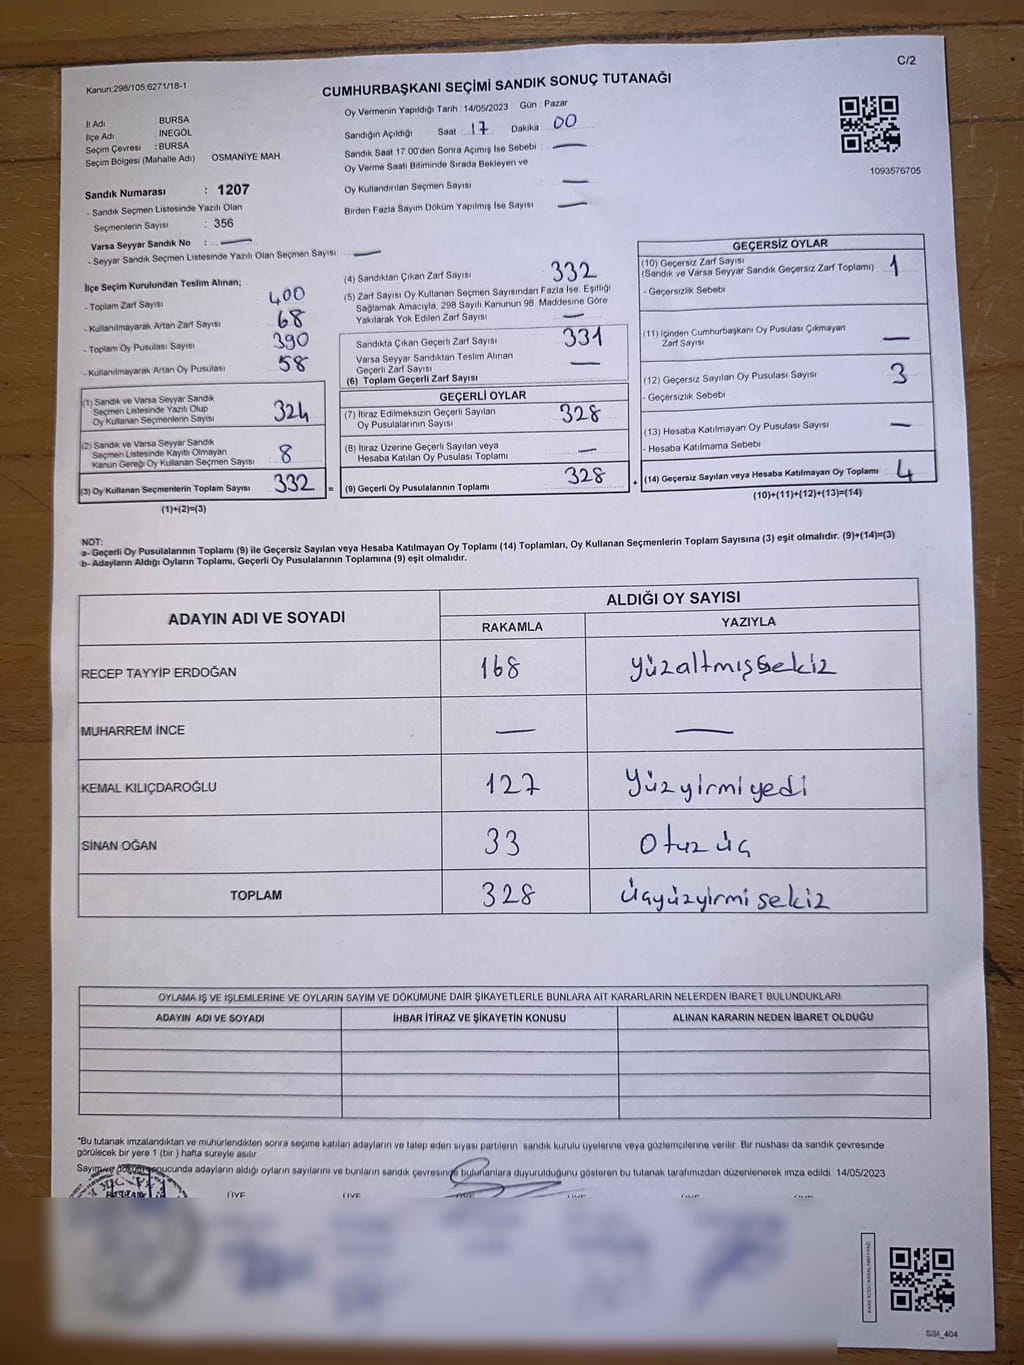 C/2
Kanun:298/105 6271/18-1
CUMHURBAŞKANI SEÇİMİ SANDIK SONUÇ TUTANAĞI
İl Adı : BURSA
İlçe Adı : İNEGÖL
Seçim Çevresi : BURSA
Seçim Bölgesi (Mahalle Adı) OSMANİYE MAH
Sandık Numarası : 1207
- Sandık Seçmen Listesinde Yazılı Olan
Seçmenlerin Sayısı : 356
Varsa Seyyar Sandık No : —
- Seyyar Sandık Seçmen Listesinde Yazılı Olan Seçmen Sayısı —
Oy Vermenin Yapıldığı Tarih : 14/05/2023 Gün : Pazar
Sandığın Açıldığı Saat 17 Dakika 00
Sandık Saat 17:00'den Sonra Açımış İse Sebebi : —
Oy Verme Saati Bitiminde Sırada Bekleyen ve
Oy Kullandırılan Seçmen Sayısı : —
Birden Fazla Sayım Döküm Yapılmış İse Sayısı : —
1093576705
İlçe Seçim Kurulundan Teslim Alınan;
- Toplam Zarf Sayısı : 400
- Kullanılmayarak Artan Zarf Sayısı : 68
- Toplam Oy Pusulası Sayısı : 390
- Kullanılmayarak Artan Oy Pusulası : 58
(1) Sandık ve Varsa Seyyar Sandık
Seçmen Listesinde Yazılı Olup
Oy Kullanan Seçmenlerin Sayısı : 324
(2) Sandık ve Varsa Seyyar Sandık
Seçmen Listesinde Kayıtlı Olmayan
Kanun Gereği Oy Kullanan Seçmen Sayısı : 8
(3) Oy Kullanan Seçmenlerin Toplam Sayısı : 332 =
(1)+(2)=(3)
(4) Sandıktan Çıkan Zarf Sayısı : 332
(5) Zarf Sayısı Oy Kullanan Seçmen Sayısından Fazla İse, Eşitliği
Sağlamak Amacıyla, 298 Sayılı Kanunun 98. Maddesine Göre
Yakılarak Yok Edilen Zarf Sayısı : —
Sandıkta Çıkan Geçerli Zarf Sayısı : 331
Varsa Seyyar Sandıktan Teslim Alınan
Geçerli Zarf Sayısı : —
(6) Toplam Geçerli Zarf Sayısı
GEÇERLİ OYLAR
(7) İtiraz Edilmeksizin Geçerli Sayılan
Oy Pusulasının Sayısı : 328
(8) İtiraz Üzerine Geçerli Sayılan veya
Hesaba Katılan Oy Pusulası Toplamı : —
(9) Geçerli Oy Pusulalarının Toplamı : 328 +
GEÇERSİZ OYLAR
(10) Geçersiz Zarf Sayısı
(Sandık ve Varsa Seyyar Sandık Geçersiz Zarf Toplamı) : 1
- Geçersizlik Sebebi
(11) İçinden Cumhurbaşkanı Oy Pusulası Çıkmayan
Zarf Sayısı : —
(12) Geçersiz Sayılan Oy Pusulası Sayısı : 3
- Geçersizlik Sebebi
(13) Hesaba Katılmayan Oy Pusulası Sayısı : —
- Hesaba Katılmama Sebebi
(14) Geçersiz Sayılan veya Hesaba Katılmayan Oy Toplamı : 4
(10)+(11)+(12)+(13)=(14)
NOT:
a- Geçerli Oy Pusulalarının Toplamı (9) ile Geçersiz Sayılan veya Hesaba Katılmayan Oy Toplamı (14) Toplamları, Oy Kullanan Seçmenlerin Toplam Sayısına (3) eşit olmalıdır. (9)+(14)=(3)
b- Adayların Aldığı Oyların Toplamı, Geçerli Oy Pusulalarının Toplamına (9) eşit olmalıdır.
ADAYIN ADI VE SOYADI ALDIĞI OY SAYISI
RAKAMLA YAZIYLA
RECEP TAYYİP ERDOĞAN 168 Yüzaltmışsekiz
MUHARREM İNCE — —
KEMAL KILIÇDAROĞLU 127 Yüzyirmiyedi
SİNAN OĞAN 33 Otuzüç
TOPLAM 328 Üçyüzyirmisekiz
OYLAMA İŞ VE İŞLEMLERİNE VE OYLARIN SAYIM VE DÖKÜMÜNE DAİR ŞİKAYETLERLE BUNLARA AİT KARARLARIN NELERDEN İBARET BULUNDUKLARI
ADAYIN ADI VE SOYADI İHBAR İTİRAZ VE ŞİKAYETİN KONUSU ALINAN KARARIN NEDEN İBARET OLDUĞU
*Bu tutanak imzalandıktan ve mühürlendikten sonra seçime katılan adayların ve talep eden siyasi partilerin sandık kurulu üyelerine veya gözlemcilerine verilir. Bir nüshası da sandık çevresinde
görülecek bir yere 1 (bir) hafta süreyle asılır.
Sayım ve döküm sonucunda adayların aldığı oyların sayılarını ve bunların sandık çevresinde bulunanlara duyurulduğunu gösteren bu tutanak tarafımızdan düzenlenerek imza edildi. 14/05/2023
SSI_404